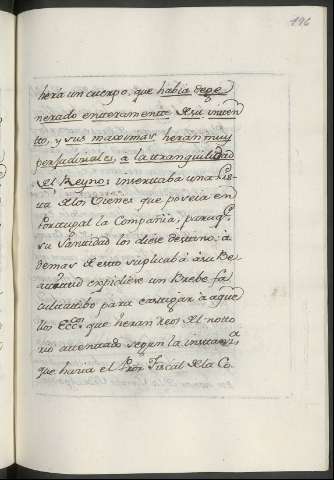 196
hera un cuerpo, que habia dege
nerado enteramente de su inven
tto, y sus maximas heran muy
perjudiciales, a la tranquilidad
del Reyno: insertaba una Lis-
ta de los Vienes que poseia en
Portugal la Compañia, para qe.
su Santidad los diese destino: a
demas de esto suplicaba à su Be
atitud expidiese un Brebe fa
cultatibo para castigar à aque
llos Eccos. que heran Reos del notto
rio attentado segun la instancia
que haria el Pror. Fiscal de la Co-